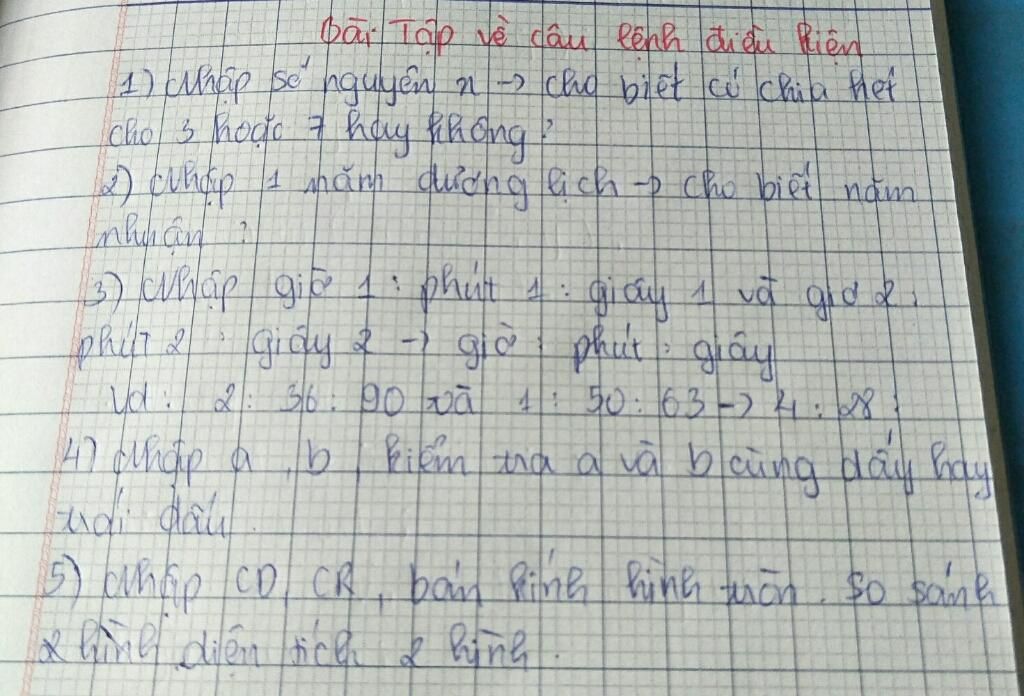 Bài Tập về câu lệnh điều kiện
1) Nhập số nguyên x → cho biết có chia hết
cho 3 hoặc 7 hay không?
2) Nhập 1 năm dương lịch → cho biết năm
nhuận ?
3) Nhập giờ 1 : phút 1 : giây 1 và giờ 2 :
phút 2 : giây 2 → giờ : phút : giây
Vd : 2 : 36 : 90 và 1 : 50 : 63 → 4 : 28 :
4) Nhập a, b, kiểm tra a và b cùng dấu hay
trái dấu.
5) Nhập CD, CR, bán kính hình tròn. So sánh
2 hình diện tích 2 hình.